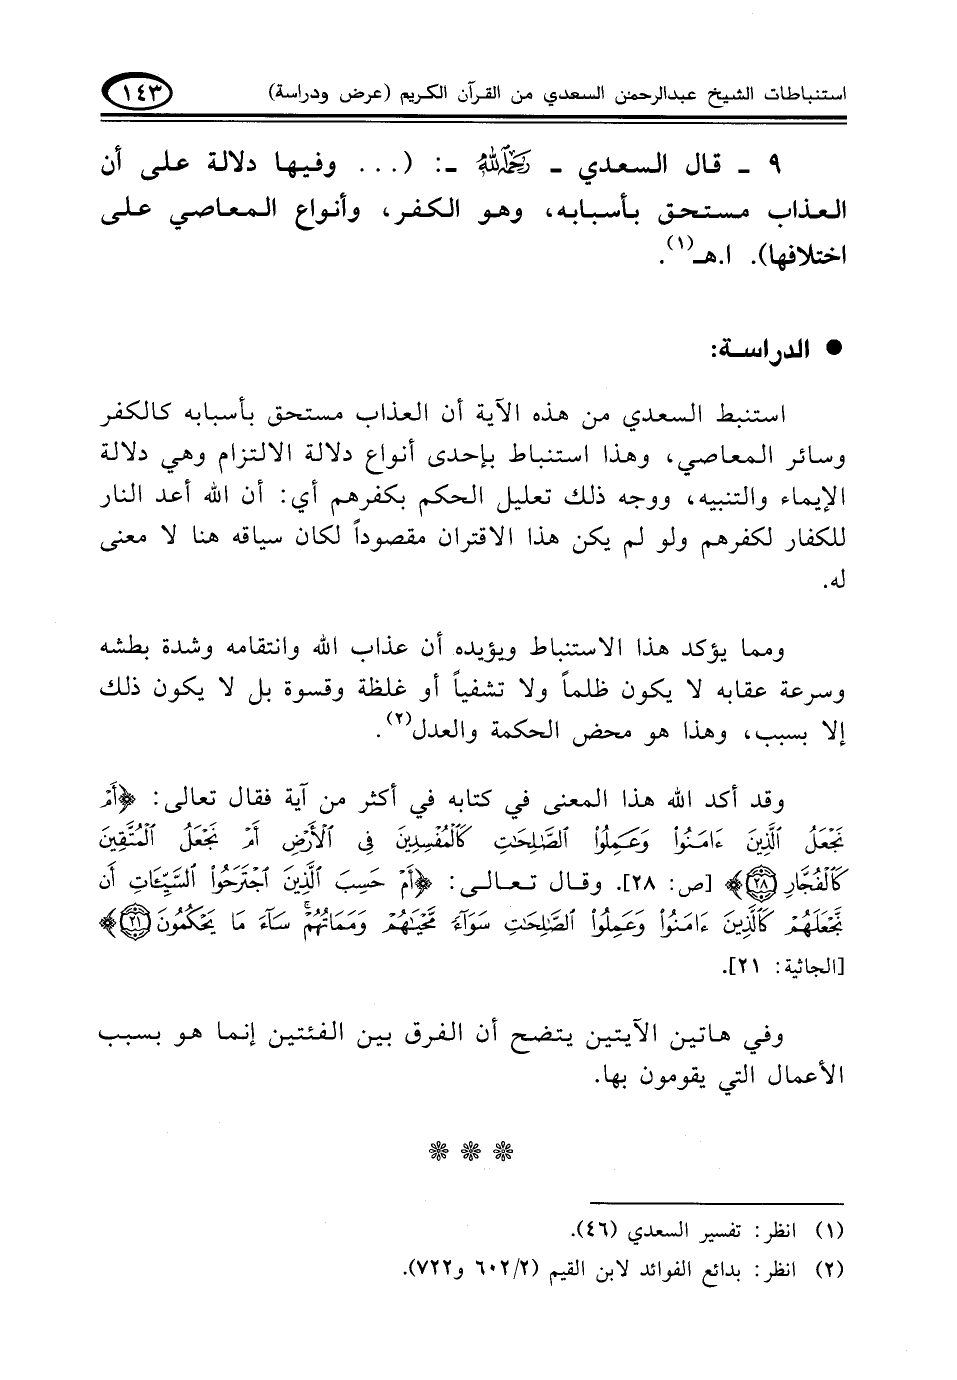 استنباطات الشيخ عبدالرحمن السعدي من القرآن الكريم (عرض ودراسة) ١٤٣
٩ ـ قال السعدي ـ رحمه الله ـ: (... وفيها دلالة على أن
العذاب مستحق بأسبابه، وهو الكفر، وأنواع المعاصي على
اختلافها). ا.هـ(١).
● الدراسة:
استنبط السعدي من هذه الآية أن العذاب مستحق بأسبابه كالكفر
وسائر المعاصي، وهذا استنباط بإحدى أنواع دلالة الالتزام وهي دلالة
الإيماء والتنبيه، ووجه ذلك تعليل الحكم بكفرهم أي: أن الله أعد النار
للكفار لكفرهم ولو لم يكن هذا الاقتران مقصوداً لكان سياقه هنا لا معنى
له.
ومما يؤكد هذا الاستنباط ويؤيده أن عذاب الله وانتقامه وشدة بطشه
وسرعة عقابه لا يكون ظلماً ولا تشفياً أو غلظة وقسوة بل لا يكون ذلك
إلا بسبب، وهذا هو محض الحكمة والعدل(٢).
وقد أكد الله هذا المعنى في كتابه في أكثر من آية فقال تعالى: ﴿أَمْ
نَجْعَلُ ٱلَّذِينَ ءَامَنُوا۟ وَعَمِلُوا۟ ٱلصَّـٰلِحَـٰتِ كَٱلْمُفْسِدِينَ فِى ٱلْأَرْضِ أَمْ نَجْعَلُ ٱلْمُتَّقِينَ
كَٱلْفُجَّارِ ٢٨﴾ [ص: ٢٨]. وقال تعالى: ﴿أَمْ حَسِبَ ٱلَّذِينَ ٱجْتَرَحُوا۟ ٱلسَّيِّـَٔاتِ أَن
نَّجْعَلَهُمْ كَٱلَّذِينَ ءَامَنُوا۟ وَعَمِلُوا۟ ٱلصَّـٰلِحَـٰتِ سَوَآءً مَّحْيَاهُمْ وَمَمَاتُهُمْ ۚ سَآءَ مَا يَحْكُمُونَ ٢١﴾
[الجاثية: ٢١].
وفي هاتين الآيتين يتضح أن الفرق بين الفئتين إنما هو بسبب
الأعمال التي يقومون بها.
❊ ❊ ❊
(١) انظر: تفسير السعدي (٤٦).
(٢) انظر: بدائع الفوائد لابن القيم (٦٠٢/٢ و٧٢٢).